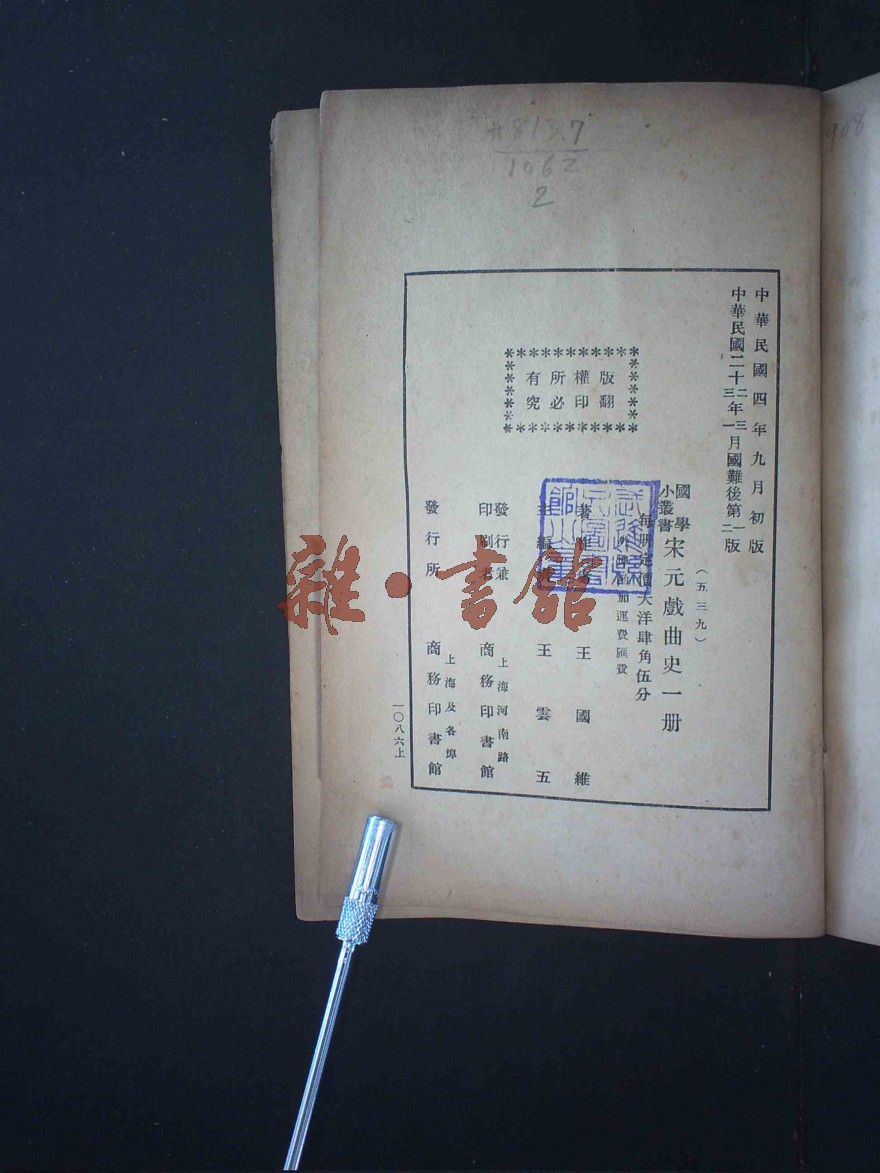 H813.7
1062
2
908
中華民國四年九月初版
中華民國二十二年三月國難後第一版
三年一月 二
(五三九)
國學小叢書 宋元戲曲史一册
每册定價大洋肆角伍分
外埠酌加運費匯費
著作者 王國維
主編者 王雲五
發行兼印刷者 上海河南路 商務印書館
發行所 上海及各埠 商務印書館
版權所有
翻印必究
一〇八六上
雜·書館